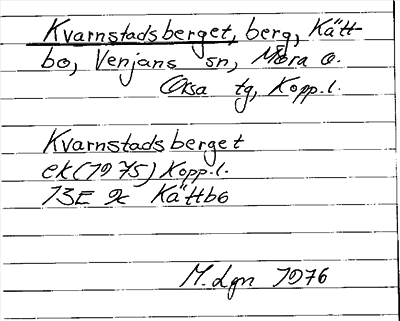 Kvarnstadsberget, berg, Kätt-
bo, Venjans sn, Mora o.
Orsa tg, Kopp.l.
Kvarnstadsberget
ek (1975) Kopp.l.
13E 9c Kättbo
M. Lgn 1976